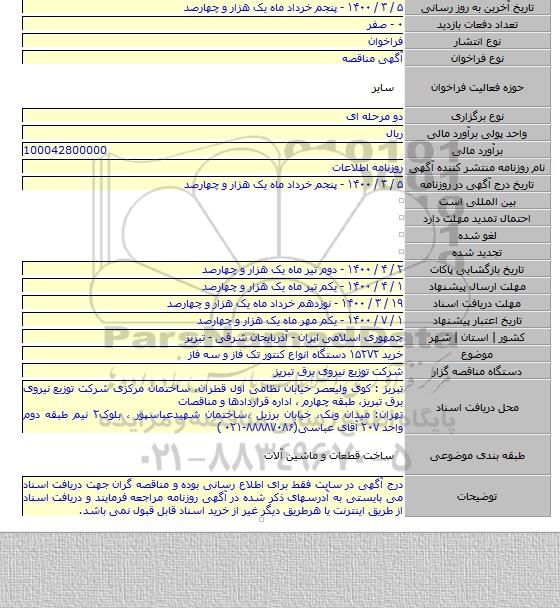 تاریخ آخرین به روز رسانی ۵ / ۳ / ۱۴۰۰ - پنجم خرداد ماه یک هزار و چهارصد
تعداد دفعات بازدید ۰ - صفر
نوع انتشار فراخوان
نوع فراخوان آگهی مناقصه
حوزه فعالیت فراخوان سایر
نوع برگزاری دو مرحله ای
واحد پولی برآورد مالی ریال
برآورد مالی 100042800000
نام روزنامه منتشر کننده آگهی روزنامه اطلاعات
تاریخ درج آگهی در روزنامه ۵ / ۳ / ۱۴۰۰ - پنجم خرداد ماه یک هزار و چهارصد
بین المللی است
احتمال تمدید مهلت دارد
لغو شده
تجدید شده
تاریخ بازگشایی پاکات ۲ / ۴ / ۱۴۰۰ - دوم تیر ماه یک هزار و چهارصد
مهلت ارسال پیشنهاد ۱ / ۴ / ۱۴۰۰ - یکم تیر ماه یک هزار و چهارصد
مهلت دریافت اسناد ۱۹ / ۳ / ۱۴۰۰ - نوزدهم خرداد ماه یک هزار و چهارصد
تاریخ اعتبار پیشنهاد ۱ / ۷ / ۱۴۰۰ - یکم مهر ماه یک هزار و چهارصد
کشور | استان | شهر جمهوری اسلامی ایران - آذربایجان شرقی - تبریز
موضوع خرید ۱۵۲۷۲ دستگاه انواع کنتور تک فاز و سه فاز
دستگاه مناقصه گزار شرکت توزیع نیروی برق تبریز
محل دریافت اسناد تبریز : کوی ولیعصر خیابان نظامی اول قطران، ساختمان مرکزی شرکت توزیع نیروی
برق تبریز، طبقه چهارم ، اداره قراردادها و مناقصات
تهران: میدان ونک، خیابان برزیل ،ساختمان شهیدعباسپور ، بلوک۲ نیم طبقه دوم
واحد ۲۰۷ آقای عباسی(۸۸۸۷۰۸۶-۰۲۱ )
طبقه بندی موضوعی ساخت قطعات و ماشین آلات
توضیحات درج آگهی در سایت فقط برای اطلاع رسانی بوده و مناقصه گران جهت دریافت اسناد
می بایستی به آدرسهای ذکر شده در آگهی روزنامه مراجعه فرمایند و دریافت اسناد
از طریق اینترنت یا هرطریق دیگر غیر از خرید اسناد قابل قبول نمی باشد.
ParsNamadData
۰۲۱-۸۸۳۴۹۶۷۰-۵